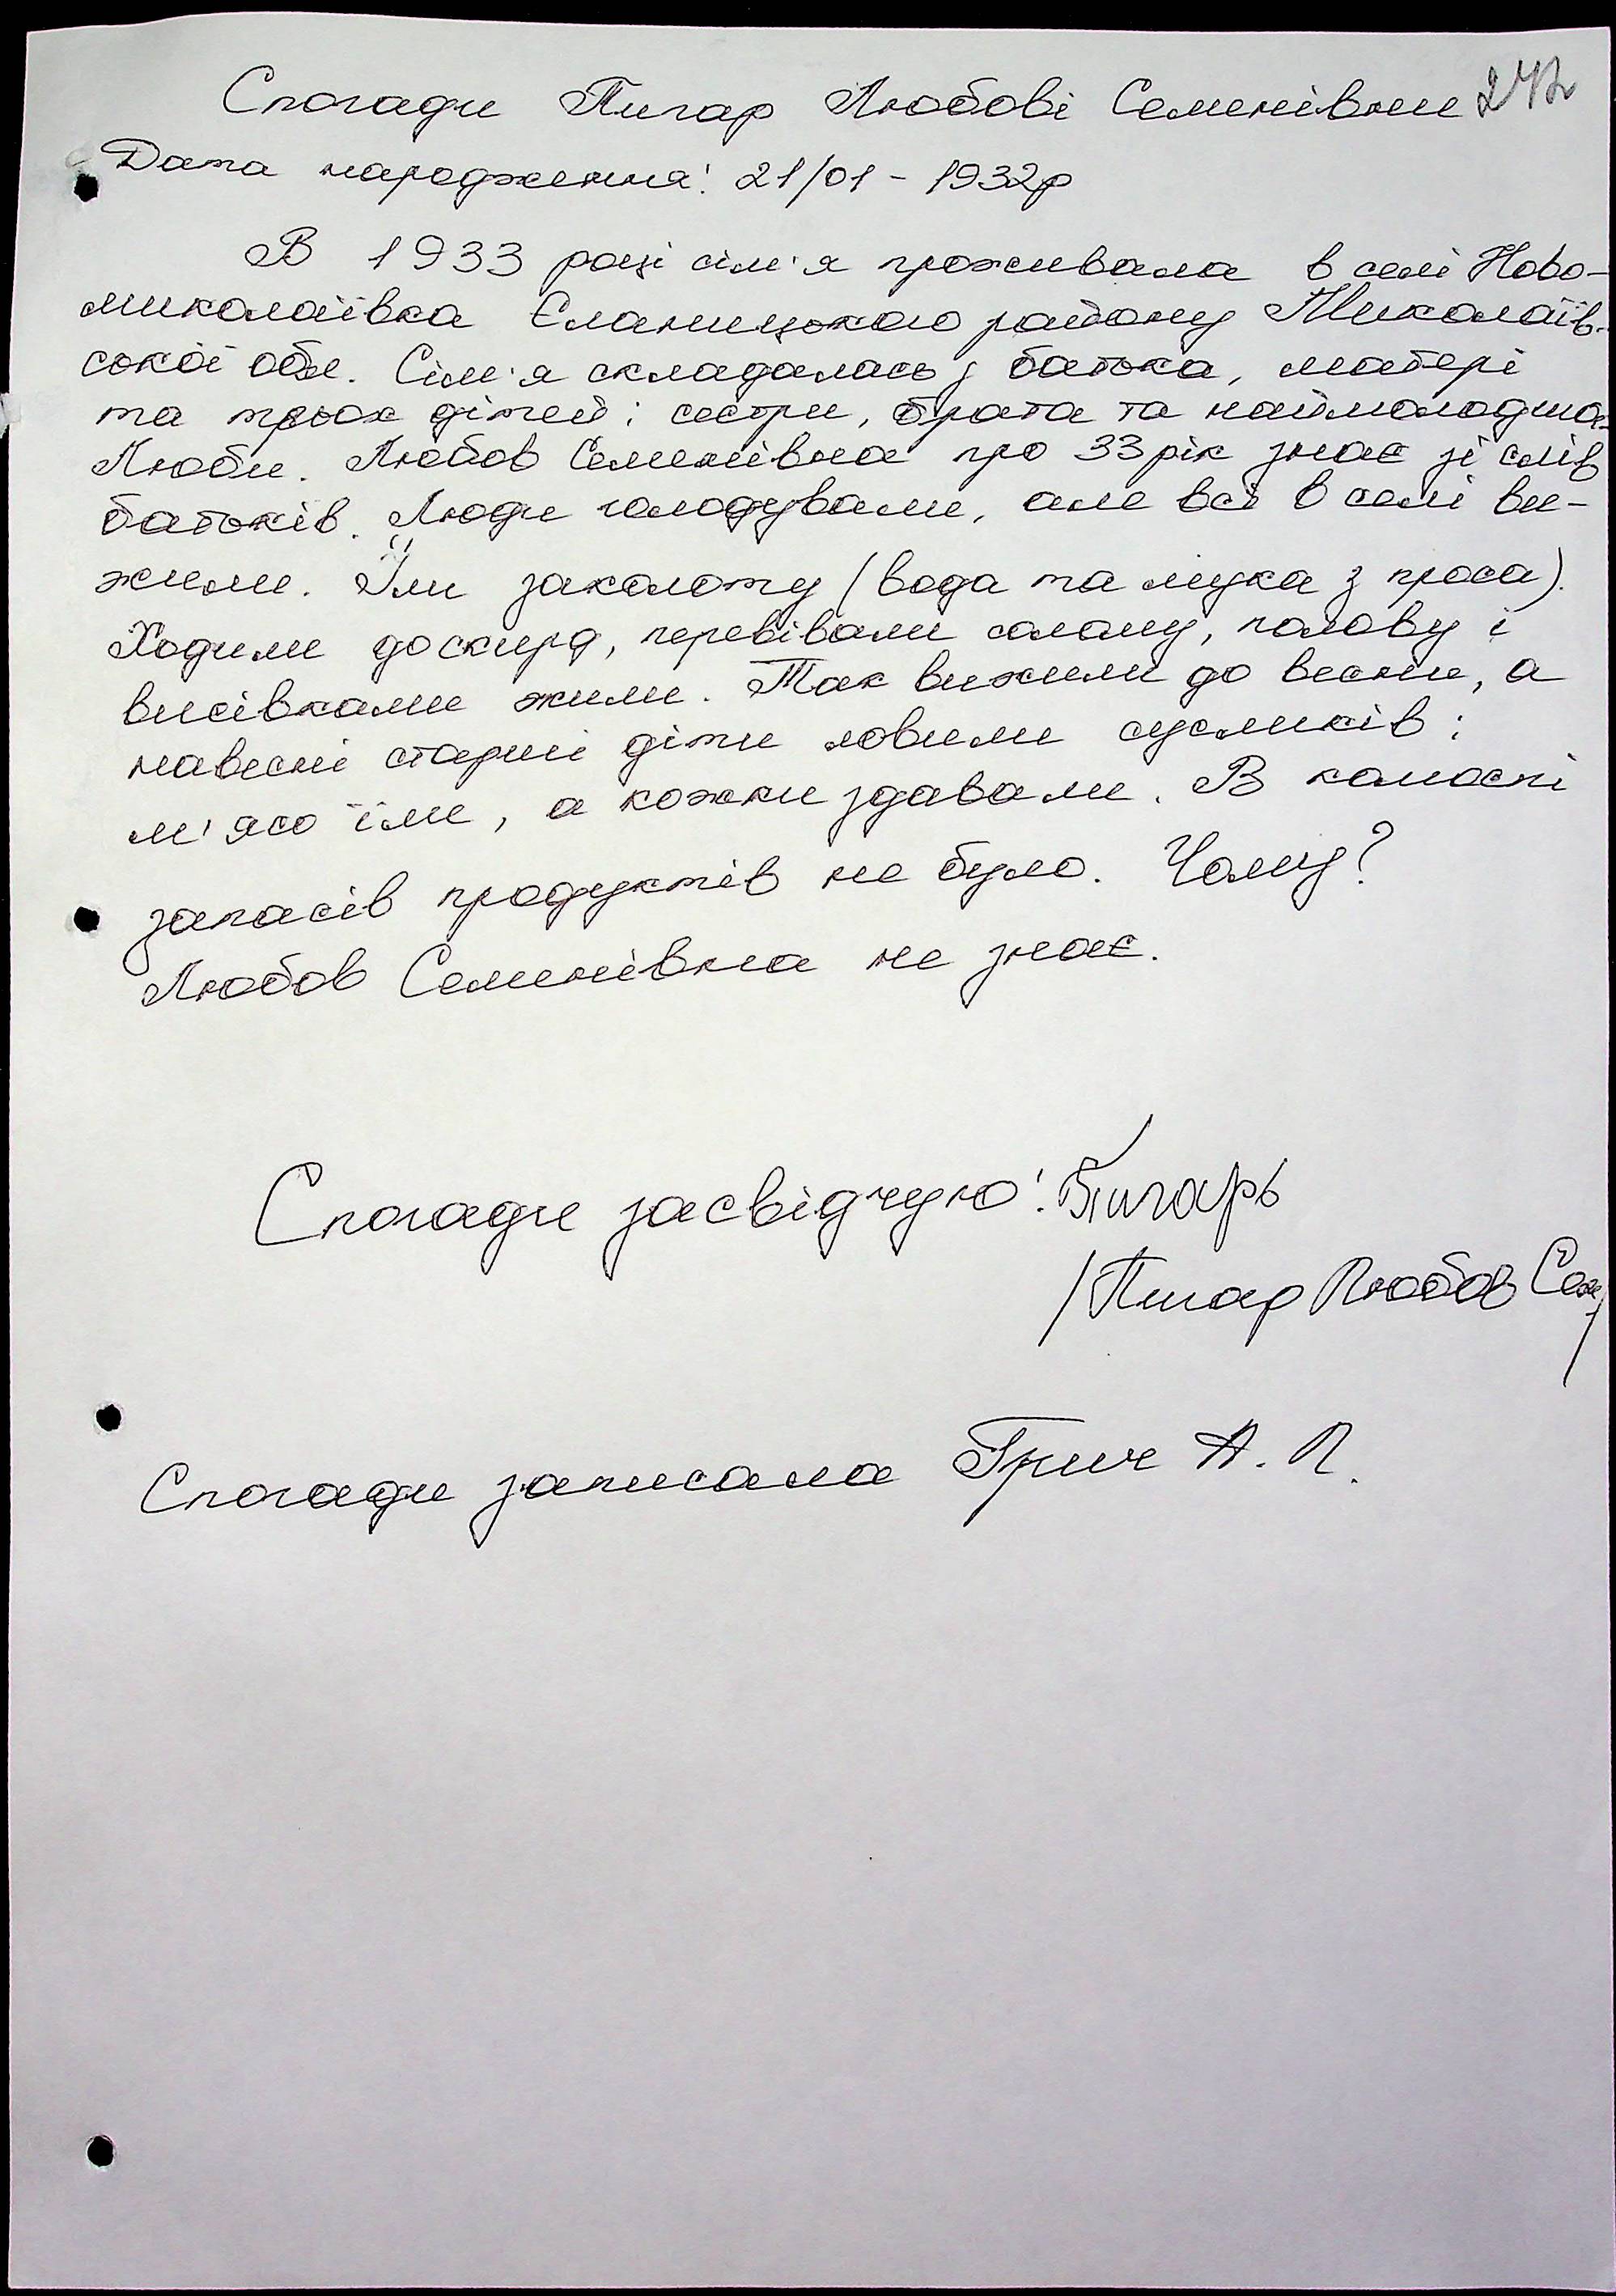 Спогади Пигар Любові Семенівни 242
Дата народження: 21/01 - 1932р
В 1933 році сім'я проживала в селі Ново-
миколаївка Єланецького району Миколаїв-
ської обл. Сім'я складалась з батька, матері
та трьох дітей: сестри, брата та наймолодшої
Люби. Любов Семенівна про 33 рік знає зі слів
батьків. Люди голодували, але всі в селі ви-
жили. Їли заколоту (вода та мука з проса).
Ходили до скирд, перевівали солому, полову і
висівками жили. Так вижили до весни, а
навесні старші діти ловили сусликів:
м'ясо їли, а кожки здавали. В колгоспі
запасів продуктів не було. Чому?
Любов Семенівна не знає.
Спогади засвідчую: Пигарь
/Пигар Любов Сем/
Спогади записала А. П.